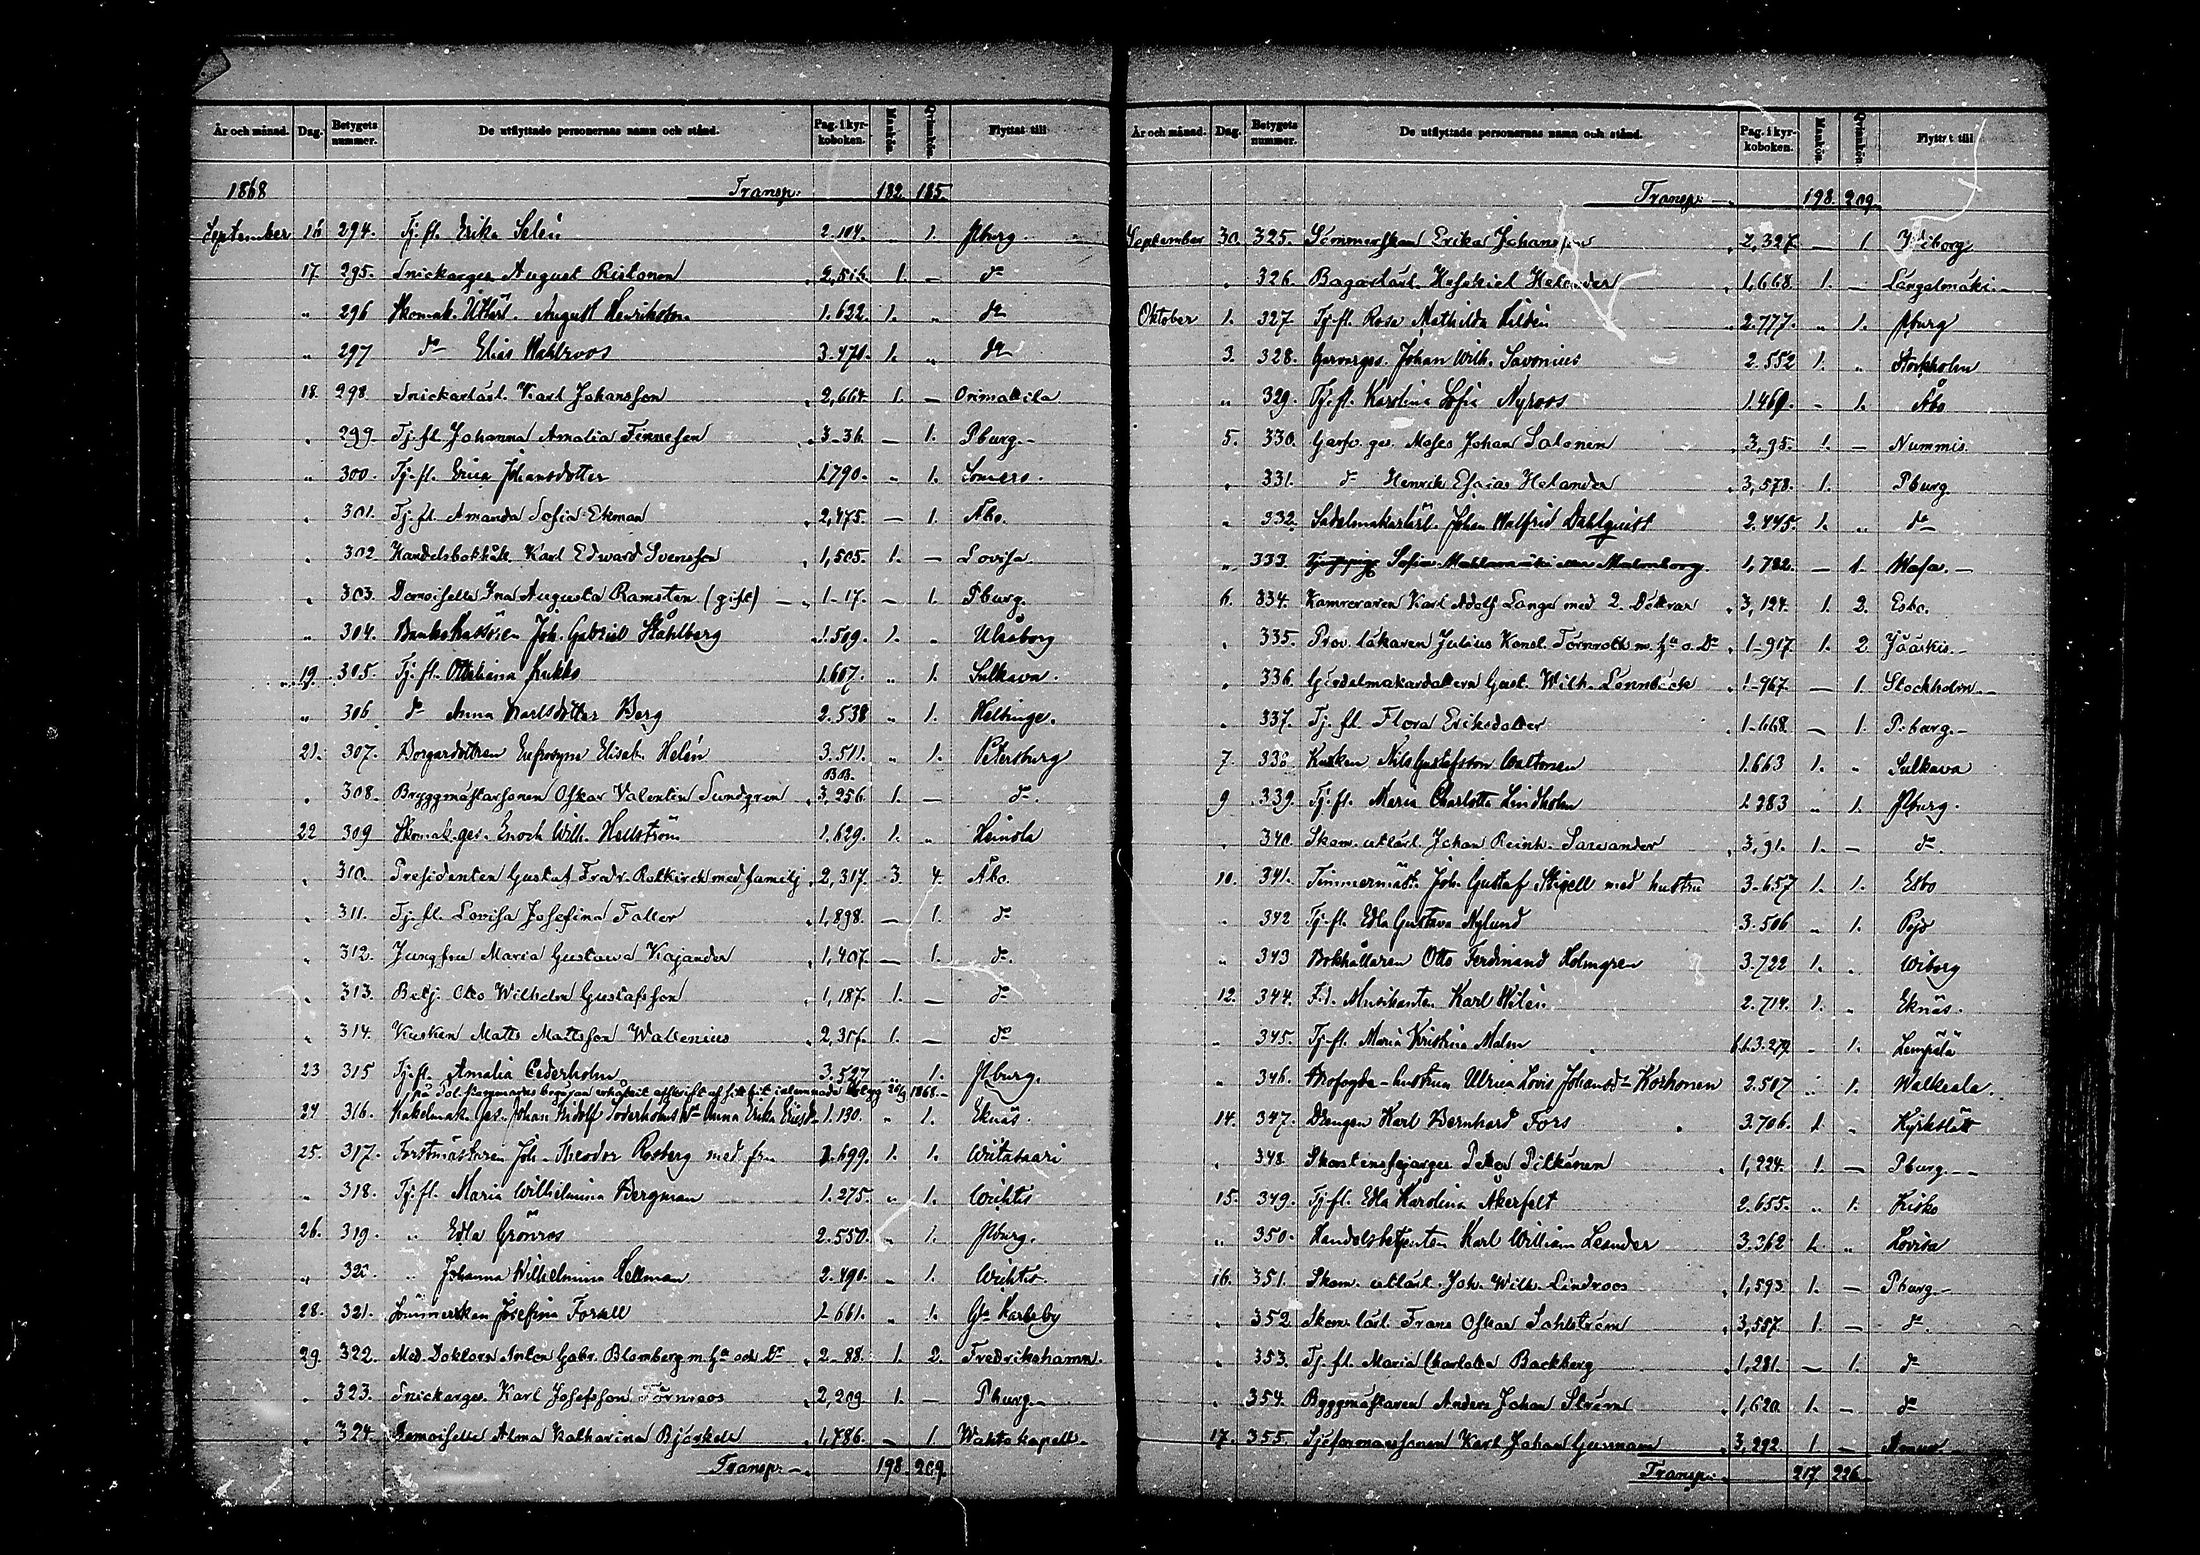 År och månad. Dag. Betygets nummer. De utflyttade personernas namn och stånd. Pag. i kyrkoboken. Mankön. Qvinnkön. Flyttat till
1868 Transp: 182. 185.
September 16 294. Tj. fl. Erika Selén 2.104. „ 1. Pburg
17. 295. Snickarges. August Ristonen 2,516 1. — do
„ 296 Skomak. Utlärl. August Henrikson 1.632 1. „ do
„ 297 do Elias Wahlroos 3.470. 1. „ do
18. 298. Snickarlärl. Karl Johansson 2,664. 1. — Orimattila
„ 299. Tj. fl. Johanna Amalia 3-36. — 1. Pburg.-
„ 300. Tj. fl. Erica Johansdotter 1.790. „ 1. Somero.
„ 301. Tj. fl. Amanda Sofia Ekman 2,475. — 1. Åbo.
„ 302 Handelsbokhåll. Karl Edward Svensson 1,505. 1. — Lovisa.
„ 303. Demoiselle Ina Augusta Ramsten (gift) — 1-17. — 1. Pburg.
„ 304. Joh. Gabriel Ståhlberg 1.509. 1. „ Uleåborg
„ 19. 305. Tj. fl. Ottiliana Kukko 1.607. „ 1. Sulkava.
„ 306 do Anna Karlsdotter Berg 2.538 „ 1. Helsinge.
21. 307. Borgardottren Eufrosyne Elisab. Helén 3.511. „ 1. Petersburg
BB.
„ 308. Bryggmästarsonen Oskar Valentin Sundgren 3,256. 1. — do.
22 309 Skomak. ges. Enoch Wilh. Hellström 1.629. 1. „ Heinola
„ 310. Presidenten Gustaf Fredr. Rotkirch med familj 2,317. 3. 4. Åbo.
„ 311. Tj. fl. Lovisa Josefina Faller 1,898. — 1. do
„ 312. Jungfru Maria Gustava Kajander 1,407. — 1. do.
„ 313. Betj. Otto Wilhelm Gustafsson 1,187. 1. — do
„ 314. Kusken Matts Mattsson Wallenius 2,317. 1. — do
23 315 Tj. fl. Amalia Cederholm 3.527 1. Pburg.
på begäran erhållit afskrift af sitt hit inlemnade betyg 1868.-
24 316. Kakelmak. Ges. Johan Ridolf Söderholms Anna Erika 1.130. „ 1. Eknäs.
25. 317. Forstmästaren Joh. Theodor Rosberg med fru 2.699. 1. 1. Wiitasaari
„ 318. Tj. fl. Maria Wilhelmina Bergman 1.275. „ 1. Wichtis
26. 319. „ Edla Grönros 2.550. „ 1. Pburg.
„ 320 „ Johanna Wilhelmina Hellman 2.490. „ 1. Wichtis.
28. 321. Sömmerskan Josefina Forsell 2-661. „ 1. Gla Karleby
29. 322. Med. Doktorn Anton Gabr. Blomberg m. Hu och Dr 2-88. 1. 2. Fredrikshamn.
„ 323. Snickarges. Karl Josefsson Törnroos 2,209 1. — Pburg.-
„ 324. Demoiselle Alma Katharina Björksell 1,786. — 1. Wahto kapell.
Transp:- 198. 209.
År och månad. Dag. Betygets nummer. De utflyttade personernas namn och stånd. Pag. i kyrkoboken. Mankön. Qvinnkön. Flyttat till
Transp:- 198. 209.
September 30. 325. Sömmerskan Erika Johansson 2,327. — 1. Wiborg
„ 326. Bagarlärl. Hesekiel Helander 1,668. 1. — Längelmäki.-
Oktober 1. 327 Tj. fl. Rosa Mathilda Hildén 2.777. „ 1. Pburg
3. 328. Garverges. Johan Wilh. Savonius 2.552 1. „ Stockholm
„ 329. Tj. fl. Karolina Sofia Nyroos 1.460. - 1. Åbo
5. 330. Garfv. ges. Moses Johan Salonen 3,95. 1. — Nummis.
„ 331. do Henrik Esaias Helander 3,578. 1. Pburg.
„ 332. Sadelmakarlärl. Johan Walfrid Dahlquist 2.445. 1. „ do
„ 333. Sofia Malmborg. 1,782. — 1. Wasa.-
6. 334. Kamreraren Karl Adolf Lange med 2. Döttrar 3,124. 1. 2. Esbo.
„ 335. Prov. läkaren Julius Konst. Törnroth m. Hu o. Dr 1-917. 1. 2 Jääskis.-
„ 336. Gördelmakardottern Gust. Wilh. Lönnbäck 1-967. — 1. Stockholm.-
„ 337. Tj. fl. Flora Eriksdotter 1.668. — 1. P.burg.-
7. 338 Kusken Nils Gustafsson Waltonen 1.663 1. „ Sulkava
9 339. Tj. fl. Maria Charlotta Lindholm 1.283 „ 1. Pburg.
„ 340. Skom. utlärl. Johan Reinh. Sarvander 3,91. 1. — do.
10. 341. Timmermäst. Joh. Gustaf Stigell med hustru 3-657 1. 1. Esbo
„ 342 Tj. fl. Edla Gustava Nylund 3.506 „ 1. Pojo
„ 343 Bokhållaren Otto Ferdinand Holmgren 3.722 1. „ Wiborg
12. 344. F.d. Musikanten Karl Hilén 2.714. 1. „ Eknäs.
„ 345. Tj. fl. Maria Kristina Malm 3.279 - 1. Lempälä
„ 346. hustrun Ulrica Lovis. Johansdr Korhonen 2.507 „ 1. Walkeala.
14. 347. Drengen Karl Bernhard Fors 3.706. 1. „ Kyrkslätt
„ 348 Skorstensfejarges. Peter Pitkänen 1,224. 1. — Pburg.--
15. 349. Tj. fl. Edla Karolina Åkerfelt 2.655. „ 1. Kisko
„ 350. Handelsbetjenten Karl William Leander 3.362 1. „ Lovisa
16. 351. Skom. utlärl. Joh. Wilh. Lindroos 1,593. 1. — Pburg.-
„ 352 Skom. lärl. Frans Oskar Sahlström 3,557. 1. — do.
„ 353. Tj. fl. Maria Charlotta Backberg 1,281. — 1. do
„ 354. Byggmästaren Anders Johan Ström 1,620. 1. — do
17. 355. Sjöformanssonen Karl Johan Gusman 3,292. 1. — Amur
Transp:- 217. 226.